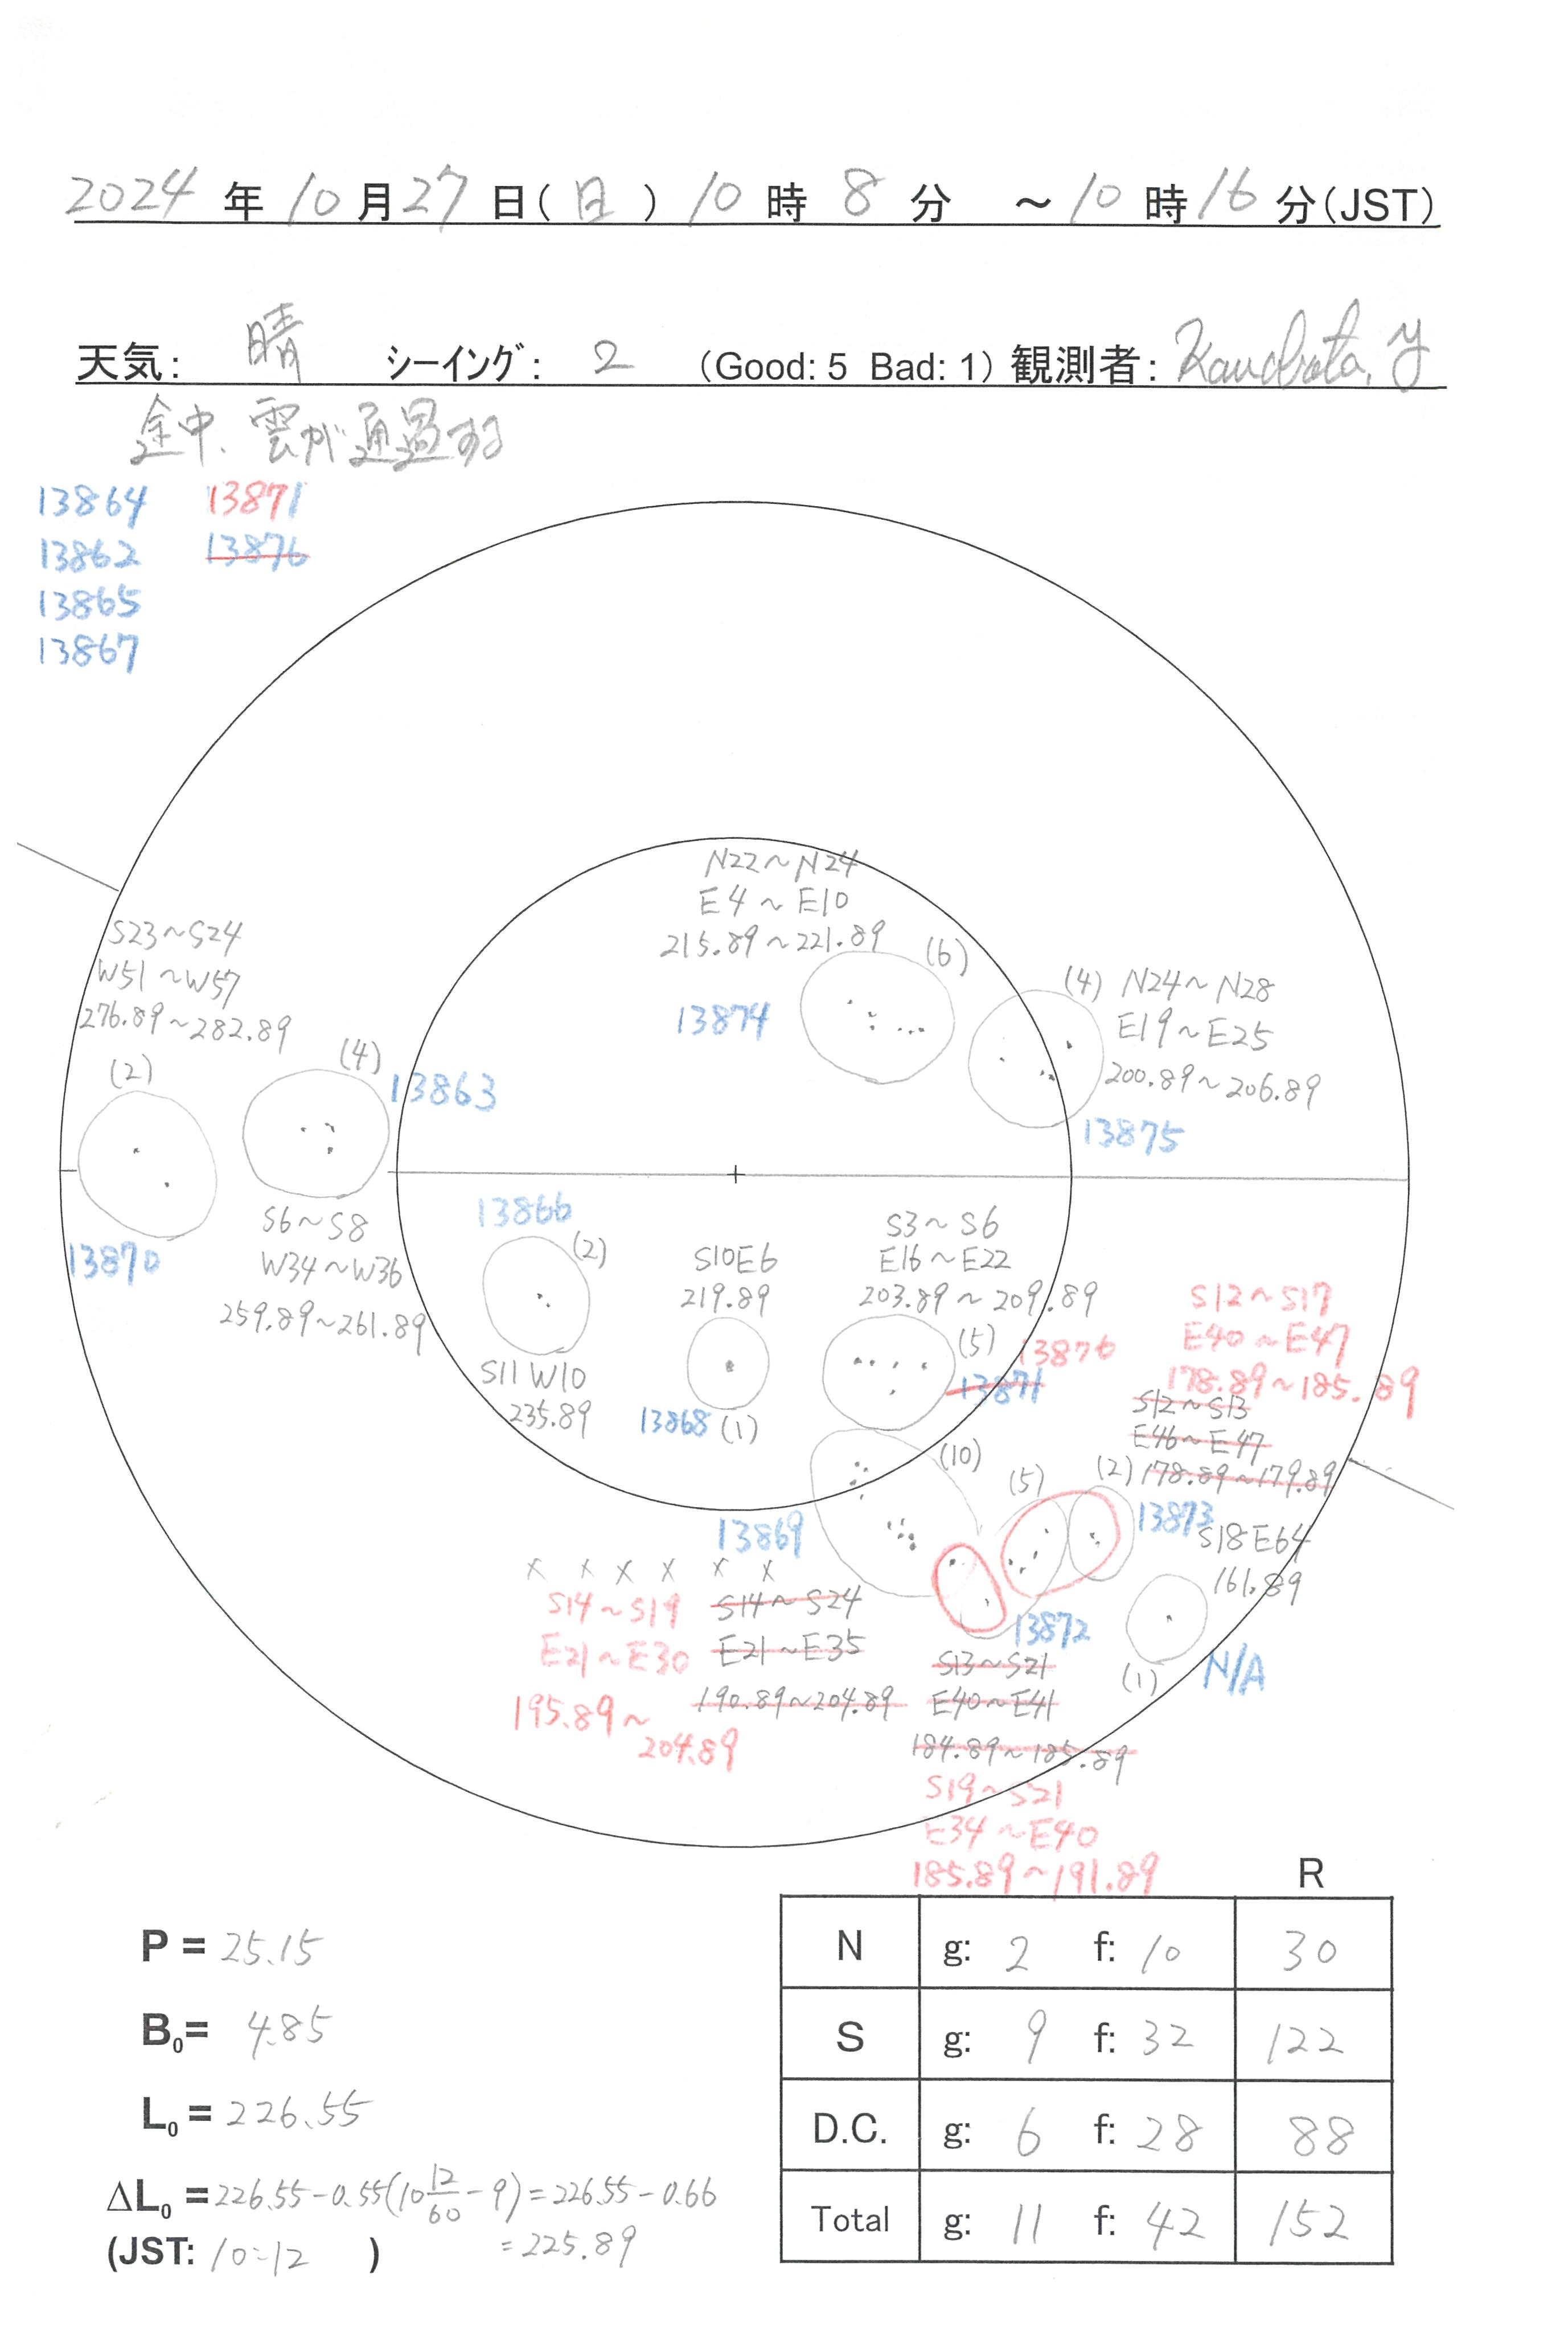 2024 年 10 月 27 日( 日 ) 10 時 8 分 ～ 10 時 16 分(JST)
天気: 晴 シーイング: 2 (Good: 5 Bad: 1) 観測者: Kawabata, Y
途中、雲が通過する
13864 13871
13862 13876
13865
13867
N22~N24
E4~E10
215.89~221.89
(6)
13874
(4) N24~N28
E19~E25
200.89~206.89
13875
S23~S24
W51~W57
276.89~282.89
(2)
13870
(4)
13863
S6~S8
W34~W36
259.89~261.89
13866
(2)
S11W10
235.89
S10E6
219.89
13868 (1)
S3~S6
E16~E22
203.89~209.89
(5) 13876
13871
S12~S17
E40~E47
178.89~185.89
S12~S13
E46~E47
(2) 178.89~179.89
13873
(10)
(5)
13869
x x x x x x
S14~S19 S14~S24
E21~E30 E21~E35
195.89~ 190.89~204.89
204.89
13872
S13~S21
E40~E41
184.89~185.89
S19~S21
E34~E40
185.89~191.89
S18E64
161.89
(1) N/A
R
N g: 2 f: 10 30
S g: 9 f: 32 122
D.C. g: 6 f: 28 88
Total g: 11 f: 42 152
P = 25.15
B₀= 4.85
L₀ = 226.55
ΔL₀ = 226.55-0.55(10 12/60 - 9) = 226.55-0.66
(JST: 10:12 ) = 225.89